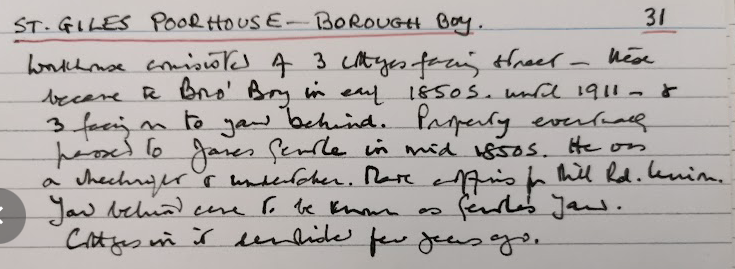 ST. GILES POORHOUSE — BOROUGH BOY. 31
Workhouse consisted of 3 cottages facing street — these
became the Boro' Boy in early 1850s. until 1911 — &
3 facing on to yard behind. Property eventually
passed to James Gentle in mid 1850s. He was
a & undertaker. Mill Rd.
Yard behind came to be known as Gentles Yard.
Cottages in it few years ago.